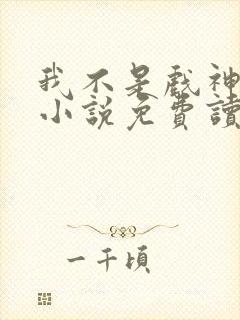 我不是戲神
小說免費讀
一千頃